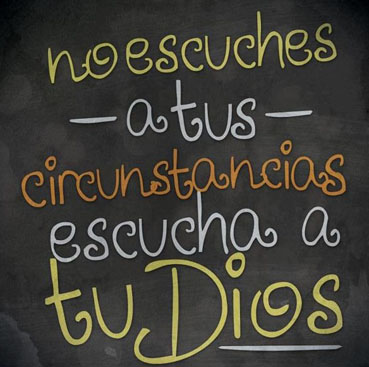 no escuches
— a tus —
circunstancias
escucha a
tu Dios